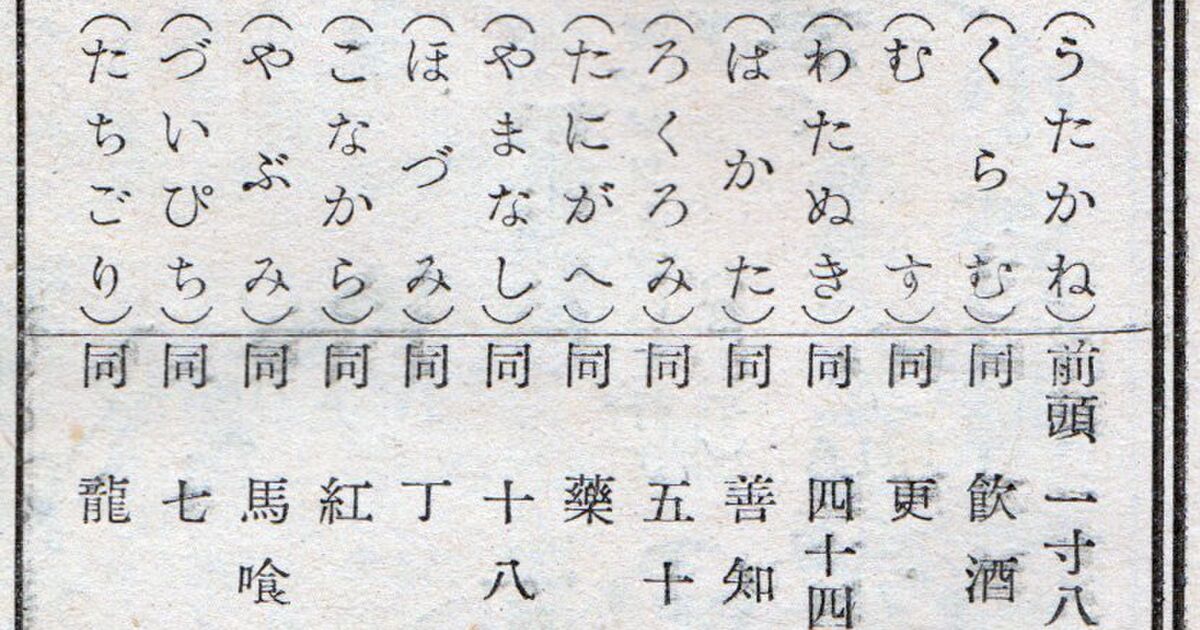 (うたかね)
(くらむ)
(むす)
(わたぬき)
(はかた)
(ろくろみ)
(たにがへ)
(やまなし)
(ほづみ)
(こなから)
(やぶみ)
(づいぴち)
(たちごり)
前頭 一寸八
同 飮酒
同 更
同 四十四
同 善知
同 五十
同 藥
同 十八
同 丁
同 紅
同 馬喰
同 七
同 龍